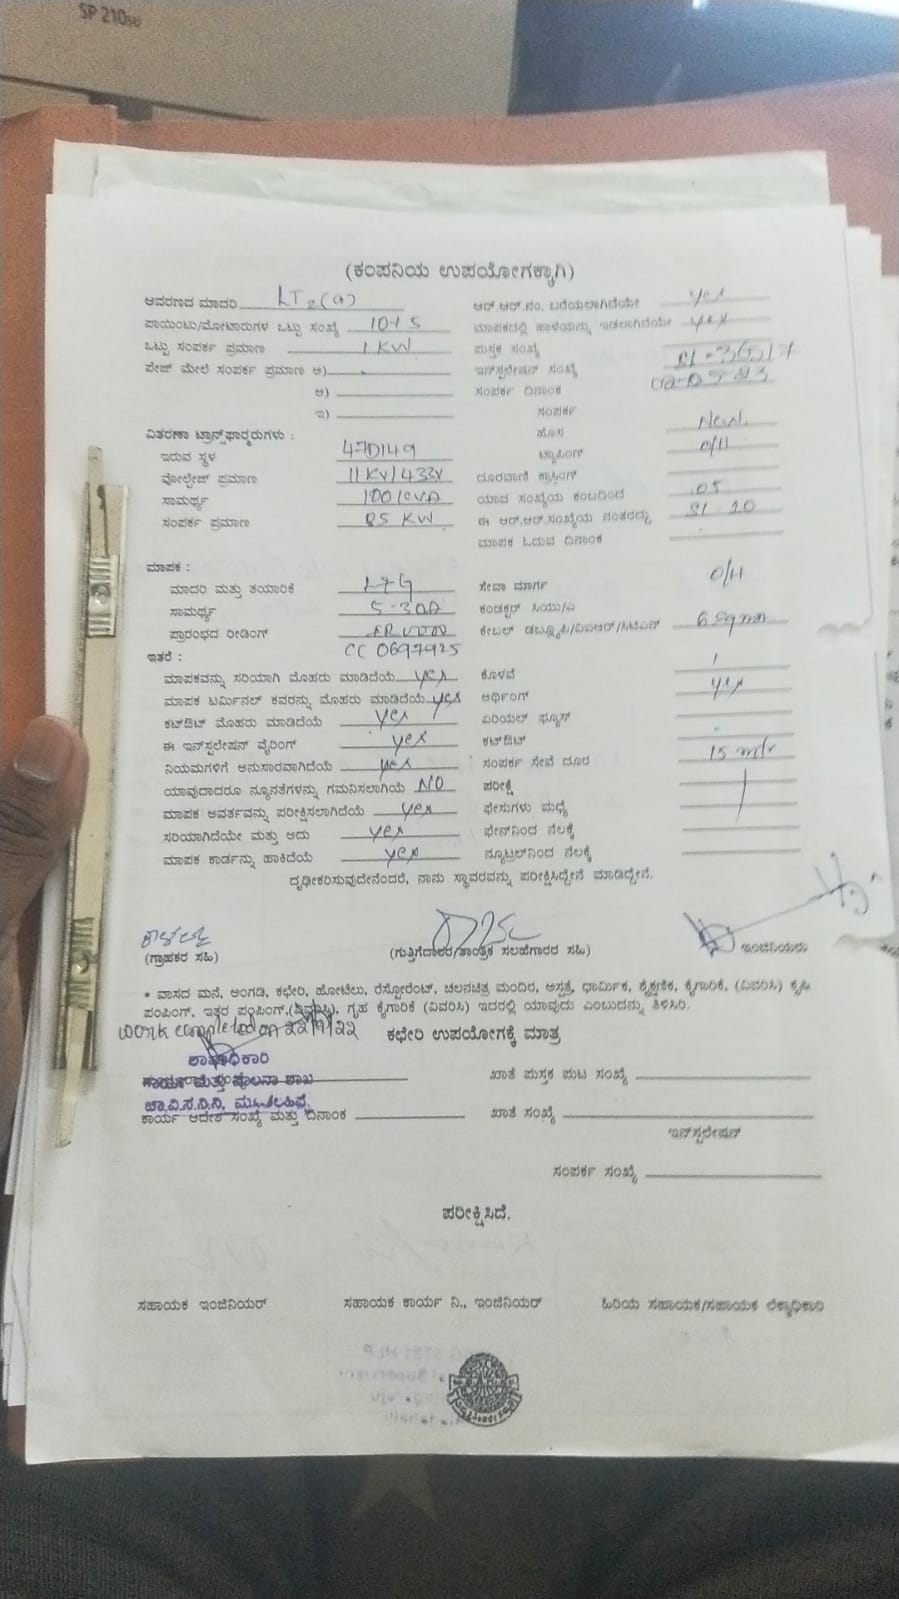 SP 210su
(ಕಂಪನಿಯ ಉಪಯೋಗಕ್ಕಾಗಿ)
ಆವರಣದ ಮಾದರಿ LT2(a) ಆರ್.ಆರ್.ನಂ. ಬರೆಯಲಾಗಿದೆಯೇ yes
ಪಾಯಿಂಟು/ಮೋಟಾರುಗಳ ಒಟ್ಟು ಸಂಖ್ಯೆ ಮಾಪಕದಲ್ಲಿ ಹಾಳೆಯನ್ನು ಇಡಲಾಗಿದೆಯೇ yes
ಒಟ್ಟು ಸಂಪರ್ಕ ಪ್ರಮಾಣ 1 KW ಪುಸ್ತಕ ಸಂಖ್ಯೆ
ಪೇಜ್ ಮೇಲೆ ಸಂಪರ್ಕ ಪ್ರಮಾಣ ಅ) ಇನ್‌ಸ್ಟಲೇಷನ್ ಸಂಖ್ಯೆ
ಆ) ಸಂಪರ್ಕ ದಿನಾಂಕ
ಇ) ಸಂಪರ್ಕ
ವಿತರಣಾ ಟ್ರಾನ್ಸ್‌ಫಾರ್ಮರುಗಳು : ಹೊಸ New
ಇರುವ ಸ್ಥಳ ಟ್ಯಾಪಿಂಗ್ O/H
ವೋಲ್ಟೇಜ್ ಪ್ರಮಾಣ 11KV/433V ದೂರವಾಣಿ ಕ್ರಾಸಿಂಗ್
ಸಾಮರ್ಥ್ಯ 100KVA ಯಾವ ಸಂಖ್ಯೆಯ ಕಂಬದಿಂದ 05
ಸಂಪರ್ಕ ಪ್ರಮಾಣ 85 KW ಈ ಆರ್.ಆರ್.ಸಂಖ್ಯೆಯ ನಂತರದ್ದು
ಮಾಪಕ ಓದುವ ದಿನಾಂಕ
ಮಾಪಕ :
ಮಾದರಿ ಮತ್ತು ತಯಾರಿಕೆ L&G ಸೇವಾ ಮಾರ್ಗ O/H
ಸಾಮರ್ಥ್ಯ 5-30A ಕಂಡಕ್ಟರ್ ಸಿಯು/ಎ
ಪ್ರಾರಂಭದ ರೀಡಿಂಗ್ ಕೇಬಲ್ ಡಬ್ಲ್ಯೂಪಿ/ವಿಐಆರ್/ಸಿಟಿಎಸ್ 6 sqmm
CC 0697925
ಇತರೆ :
ಮಾಪಕವನ್ನು ಸರಿಯಾಗಿ ಮೊಹರು ಮಾಡಿದೆಯೆ yes ಕೊಳವೆ
ಮಾಪಕ ಟರ್ಮಿನಲ್ ಕವರನ್ನು ಮೊಹರು ಮಾಡಿದೆಯೆ yes ಅರ್ಥಿಂಗ್ yes
ಕಟ್‌ಔಟ್ ಮೊಹರು ಮಾಡಿದೆಯೆ yes ಏರಿಯಲ್ ಫ್ಯೂಸ್
ಈ ಇನ್‌ಸ್ಟಲೇಷನ್ ವೈರಿಂಗ್ yes ಕಟ್‌ಔಟ್
ನಿಯಮಗಳಿಗೆ ಅನುಸಾರವಾಗಿದೆಯೆ yes ಸಂಪರ್ಕ ಸೇವೆ ದೂರ 15 mtr
ಯಾವುದಾದರೂ ನ್ಯೂನತೆಗಳನ್ನು ಗಮನಿಸಲಾಗಿಯೆ NO ಪರೀಕ್ಷೆ
ಮಾಪಕ ಆವರ್ತವನ್ನು ಪರೀಕ್ಷಿಸಲಾಗಿದೆಯೆ yes ಫೇಸುಗಳು ಮಧ್ಯೆ
ಸರಿಯಾಗಿದೆಯೇ ಮತ್ತು ಅದು yes ಫೇಸ್‌ನಿಂದ ನೆಲಕ್ಕೆ
ಮಾಪಕ ಕಾರ್ಡನ್ನು ಹಾಕಿದೆಯೆ yes ನ್ಯೂಟ್ರಲ್‌ನಿಂದ ನೆಲಕ್ಕೆ
ದೃಢೀಕರಿಸುವುದೇನೆಂದರೆ, ನಾನು ಸ್ಥಾವರವನ್ನು ಪರೀಕ್ಷಿಸಿದ್ದೇನೆ ಮಾಡಿದ್ದೇನೆ.
(ಗ್ರಾಹಕರ ಸಹಿ) (ಗುತ್ತಿಗೆದಾರರ/ತಾಂತ್ರಿಕ ಸಲಹೆಗಾರರ ಸಹಿ) ಇಂಜಿನಿಯರು
* ವಾಸದ ಮನೆ, ಅಂಗಡಿ, ಕಛೇರಿ, ಹೋಟೆಲು, ರೆಸ್ಟೋರೆಂಟ್, ಚಲನಚಿತ್ರ ಮಂದಿರ, ಆಸ್ಪತ್ರೆ, ಧಾರ್ಮಿಕ, ಶೈಕ್ಷಣಿಕ, ಕೈಗಾರಿಕೆ, (ವಿವರಿಸಿ) ಕೃಷಿ
ಪಂಪಿಂಗ್, ಇತ್ತರ ಪಂಪಿಂಗ್,(ವಿವರಿಸಿ), ಗೃಹ ಕೈಗಾರಿಕೆ (ವಿವರಿಸಿ) ಇದರಲ್ಲಿ ಯಾವುದು ಎಂಬುದನ್ನು ತಿಳಿಸಿರಿ.
work completed on 22/9/22 ಕಛೇರಿ ಉಪಯೋಗಕ್ಕೆ ಮಾತ್ರ
ಶಾಖಾಧಿಕಾರಿ
ಕಾರ್ಯ ಮತ್ತು ಪಾಲನಾ ಶಾಖೆ ಖಾತೆ ಪುಸ್ತಕ ಪುಟ ಸಂಖ್ಯೆ
ಚಾ.ವಿ.ಸ.ನಿ.ನಿ,
ಕಾರ್ಯ ಆದೇಶ ಸಂಖ್ಯೆ ಮತ್ತು ದಿನಾಂಕ ಖಾತೆ ಸಂಖ್ಯೆ
ಇನ್‌ಸ್ಟಲೇಷನ್
ಸಂಪರ್ಕ ಸಂಖ್ಯೆ
ಪರೀಕ್ಷಿಸಿದೆ.
ಸಹಾಯಕ ಇಂಜಿನಿಯರ್ ಸಹಾಯಕ ಕಾರ್ಯ ನಿ., ಇಂಜಿನಿಯರ್ ಹಿರಿಯ ಸಹಾಯಕ/ಸಹಾಯಕ ಲೆಕ್ಕಾಧಿಕಾರಿ